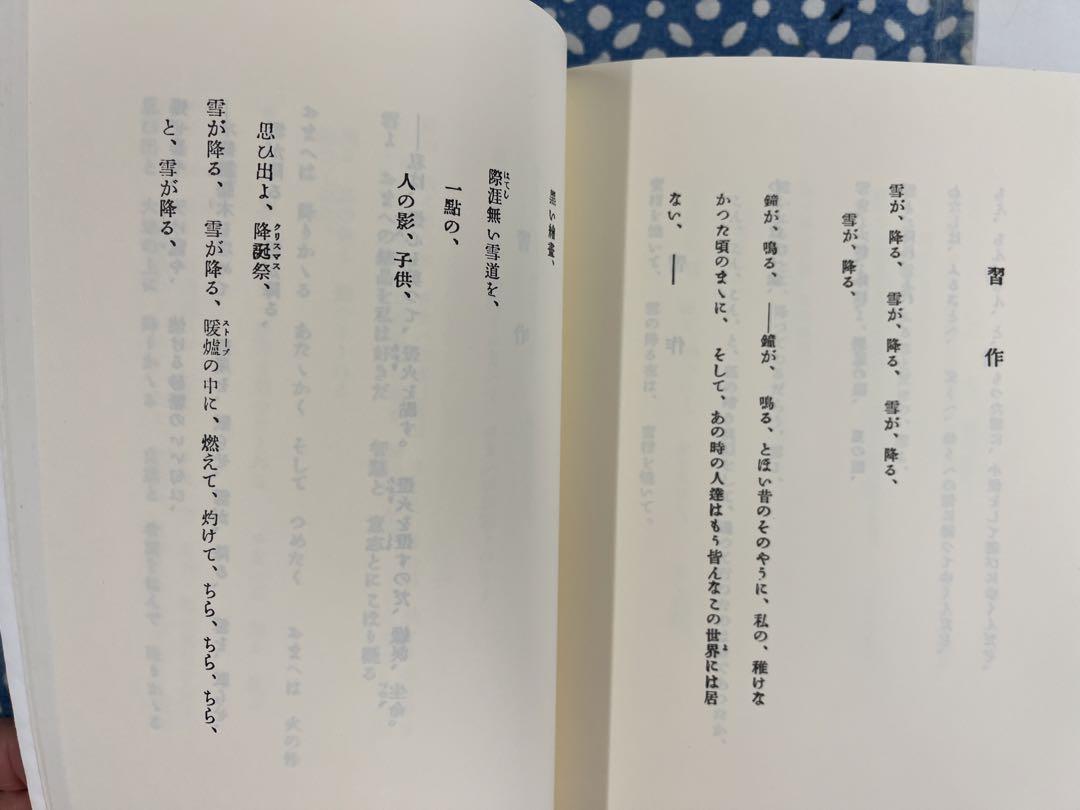 習作
雪が、降る、 雪が、降る、 雪が、降る、
雪が、降る、
鐘が、鳴る、――鐘が、 鳴る、とほい昔のそのやうに、私の、稚けな
かつた頃のまゝに、 そして、あの時の人達はもう皆んなこの世界には居
ない、――
黒い繪畫、
際涯無い雪道を、
はてし
一點の、
人の影、子供、
思ひ出よ、降誕祭、
クリスマス
雪が降る、 雪が降る、 暖爐の中に、燃えて、灼けて、ちら、ちら、ちら、
ストーブ
と、雪が降る、